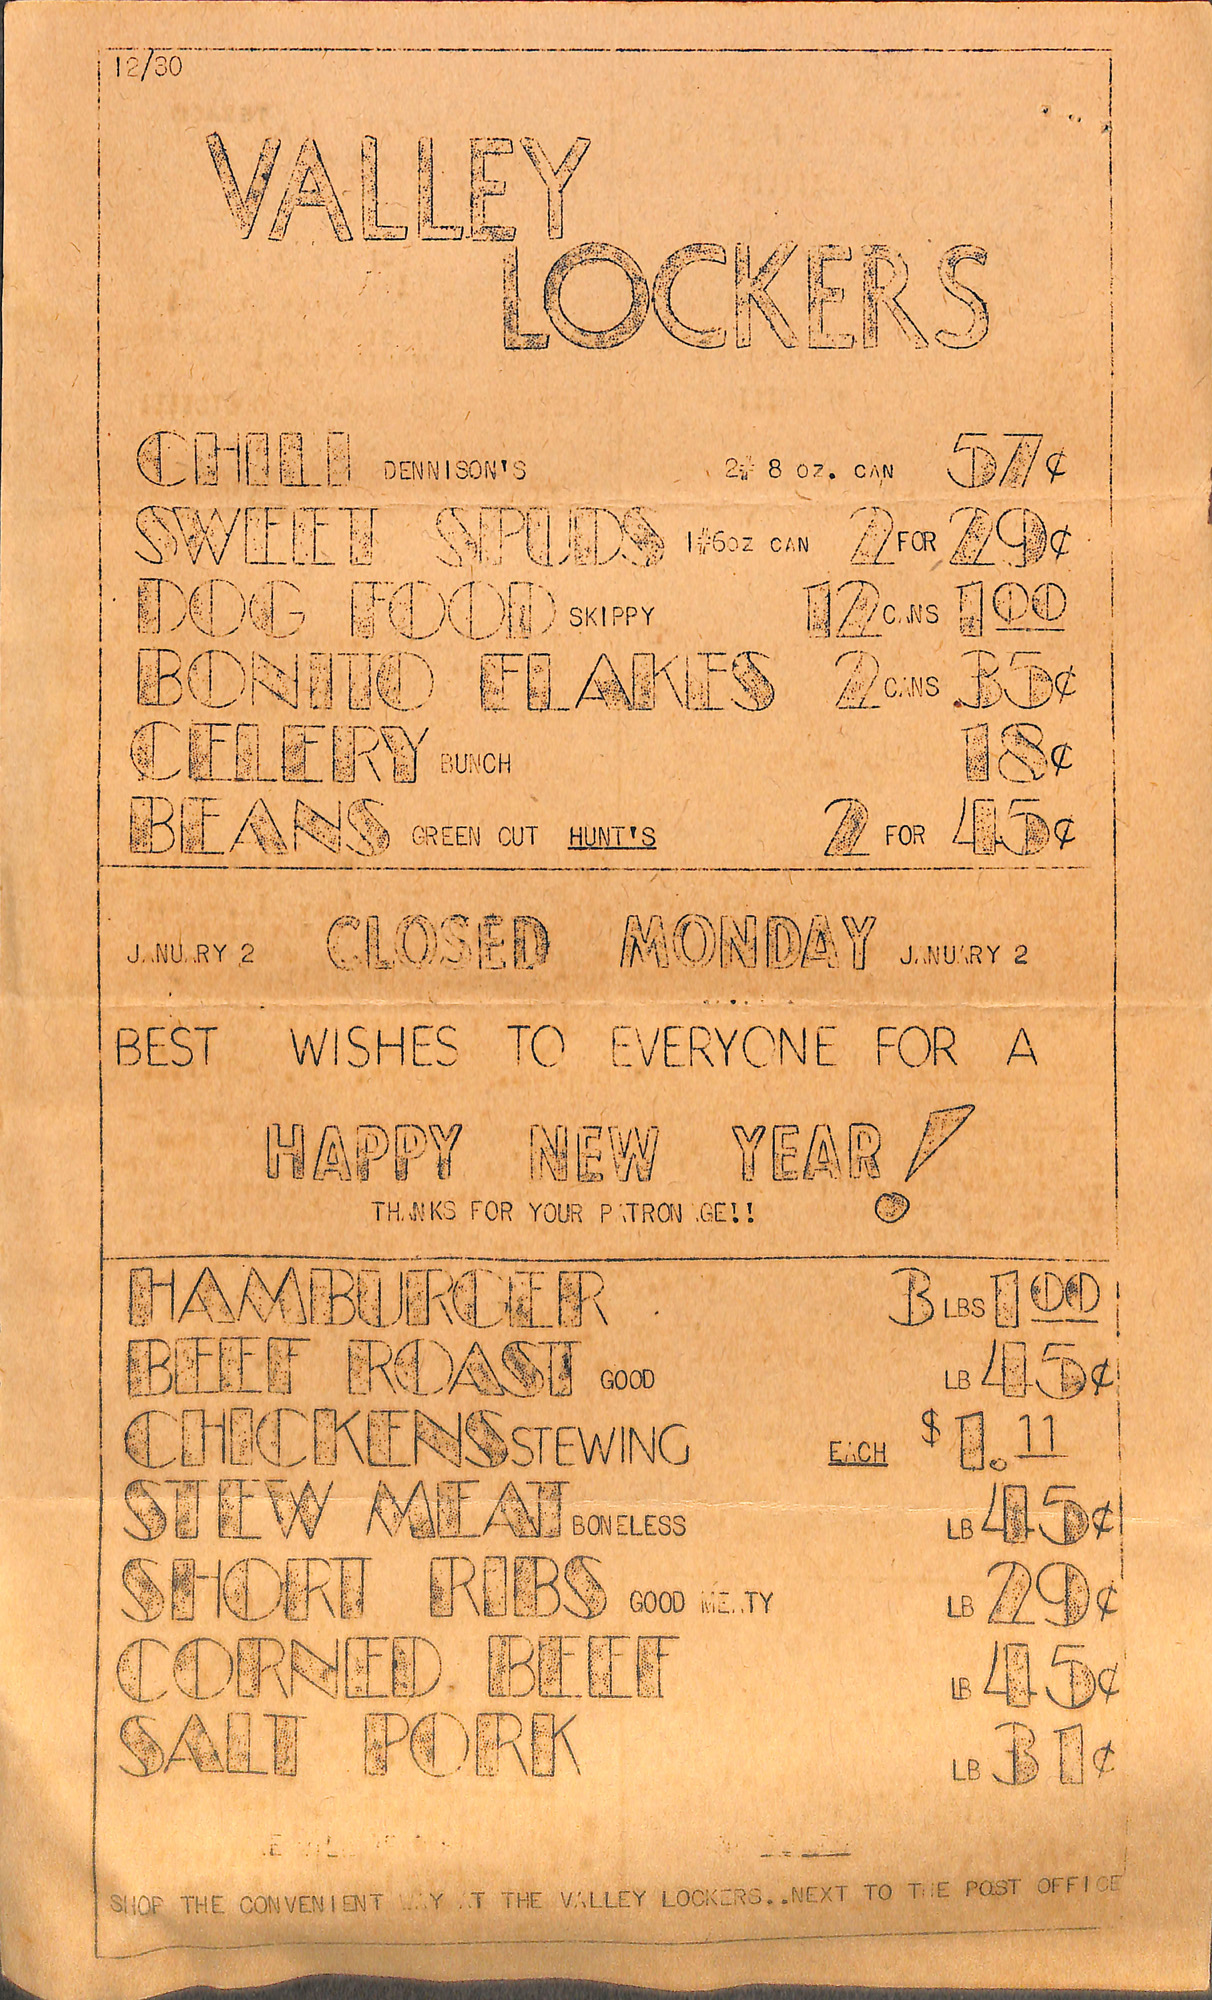 12/30
VALLEY
LOCKERS
CHILI DENNISON'S 2# 8 OZ. CAN 57¢
SWEET SPUDS 1#6OZ CAN 2 FOR 29¢
DOG FOOD SKIPPY 12 CANS 1 00
BONITO FLAKES 2 CANS 35¢
CELERY BUNCH 18¢
BEANS GREEN CUT HUNT'S 2 FOR 45¢
JANUARY 2 CLOSED MONDAY JANUARY 2
BEST WISHES TO EVERYONE FOR A
HAPPY NEW YEAR!
THANKS FOR YOUR PATRONAGE!!
HAMBURGER 3 LBS 1 00
BEEF ROAST GOOD LB 45¢
CHICKENS STEWING EACH $1.11
STEW MEAT BONELESS LB 45¢
SHORT RIBS GOOD MEATY LB 29¢
CORNED BEEF LB 45¢
SALT PORK LB 31¢
SHOP THE CONVENIENT WAY AT THE VALLEY LOCKERS..NEXT TO THE POST OFFICE